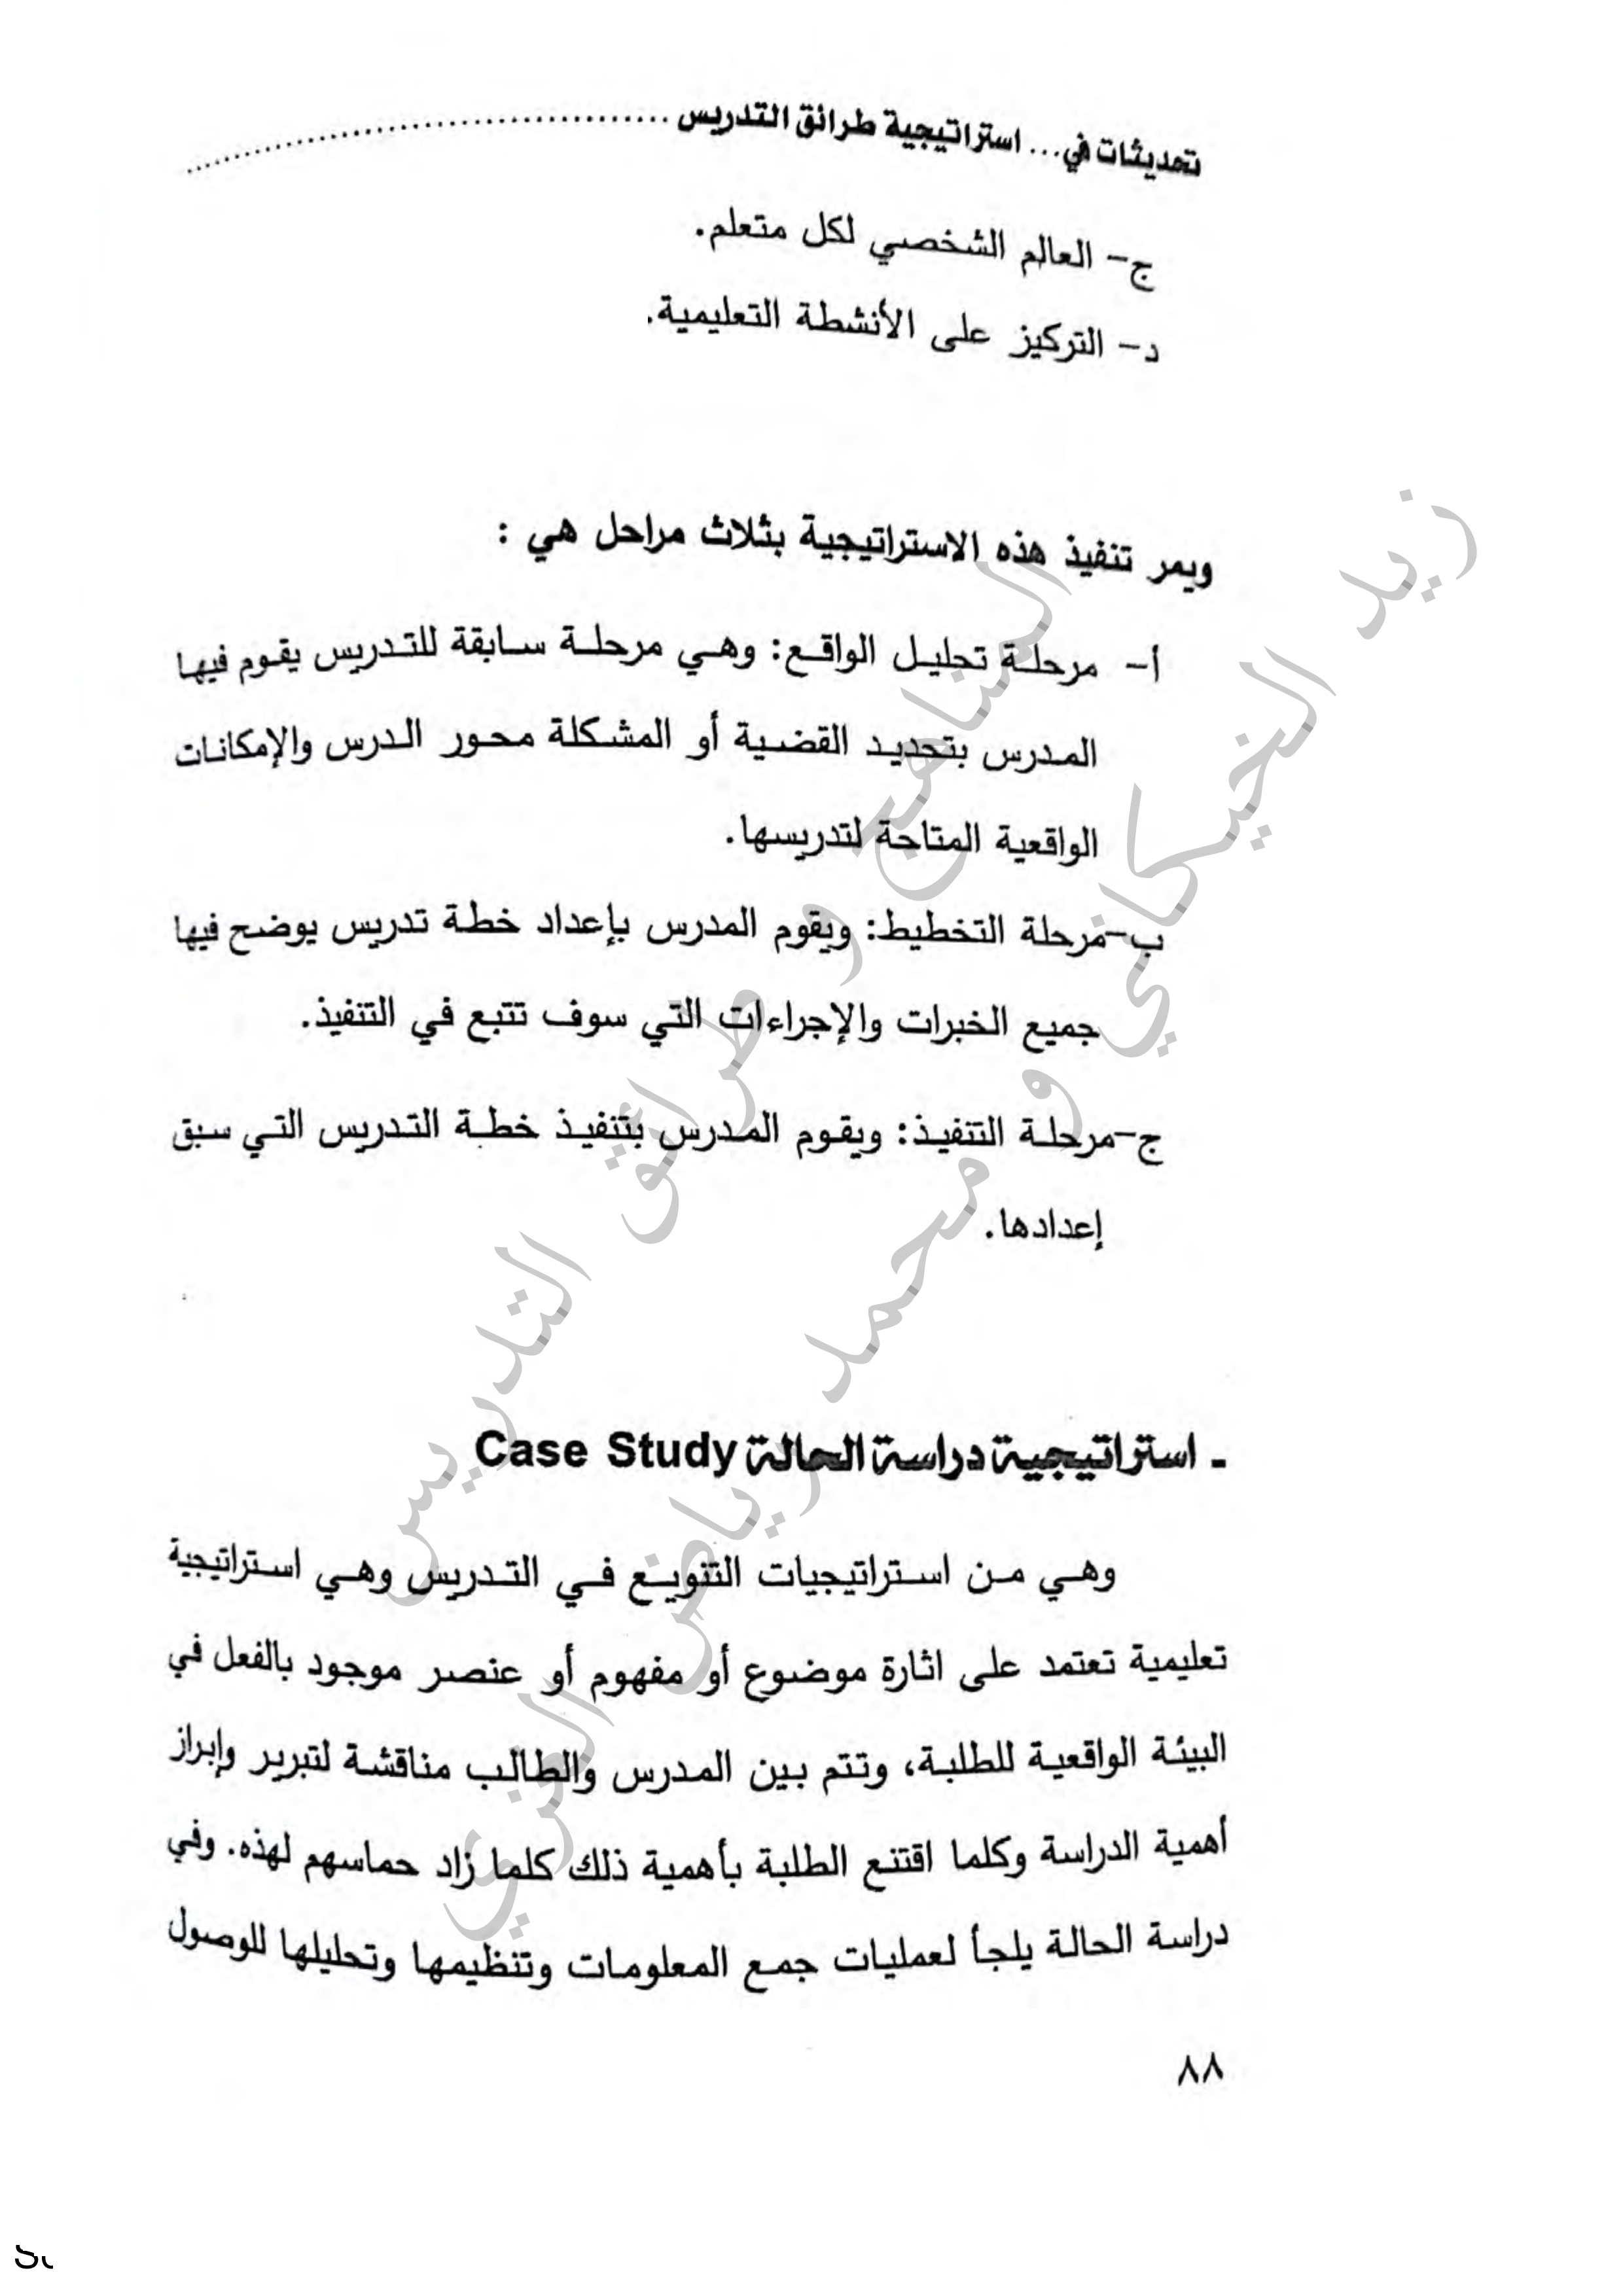 تحديثات في... استراتيجية طرائق التدريس
ج- العالم الشخصي لكل متعلم.
د- التركيز على الأنشطة التعليمية.
ويمر تنفيذ هذه الاستراتيجية بثلاث مراحل هي :
أ- مرحلة تحليل الواقع: وهي مرحلة سابقة للتدريس يقوم فيها
المدرس بتحديد القضية أو المشكلة محور الدرس والإمكانات
الواقعية المتاحة لتدريسها.
ب-مرحلة التخطيط: ويقوم المدرس بإعداد خطة تدريس يوضح فيها
جميع الخبرات والإجراءات التي سوف تتبع في التنفيذ.
ج-مرحلة التنفيذ: ويقوم المدرس بتنفيذ خطة التدريس التي سبق
إعدادها.
- استراتيجية دراسة الحالة Case Study
وهي من استراتيجيات التنويع في التدريس وهي استراتيجية
تعليمية تعتمد على اثارة موضوع أو مفهوم أو عنصر موجود بالفعل في
البيئة الواقعية للطلبة، وتتم بين المدرس والطالب مناقشة لتبرير وإبراز
أهمية الدراسة وكلما اقتنع الطلبة بأهمية ذلك كلما زاد حماسهم لهذه. وفي
دراسة الحالة يلجأ لعمليات جمع المعلومات وتنظيمها وتحليلها للوصول
٨٨
المناهج و طرائق التدريس
زيد الخيكاني و محمد رياض الغزي